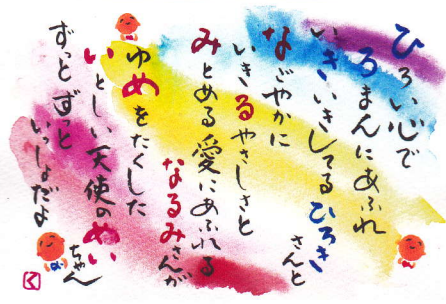 ひろい心で
ろまんにあふれ
いきいきしてるひろきさんと
なごやかに
いきるやさしさと
みとめる愛にあふれる
なるみさんが
ゆめをたくした
いとしい天使のめいちゃん
ずっとずっと
いっしょだよ